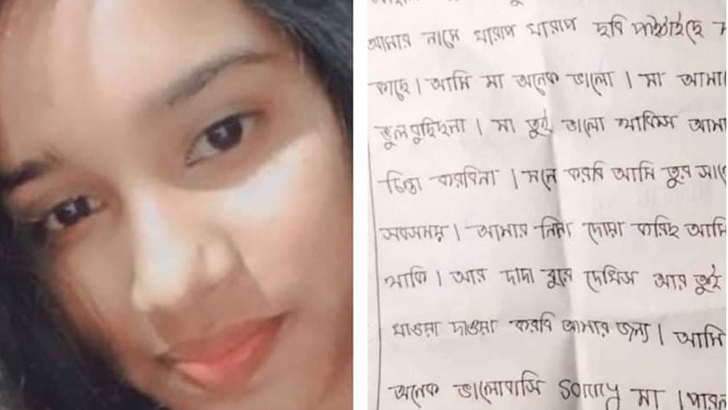 আমার নামে খারাপ খারাপ ছবি পাঠাইছে
কাছে। আমি মা অনেক ভালো। মা আমা
ভুল বুঝিছনা। মা তুই ভালো থাকিস আমা
চিন্তা করবিনা। মনে করবি আমি তুর সা
সবসময়। আমার নিগা দোয়া করিছ আমি
থাকি। আর দাদা বুরে দেখিস আর তুই
খাওয়া দাওয়া করবি আমার জন্য। আমি
অনেক ভালোবাসি sorry মা।